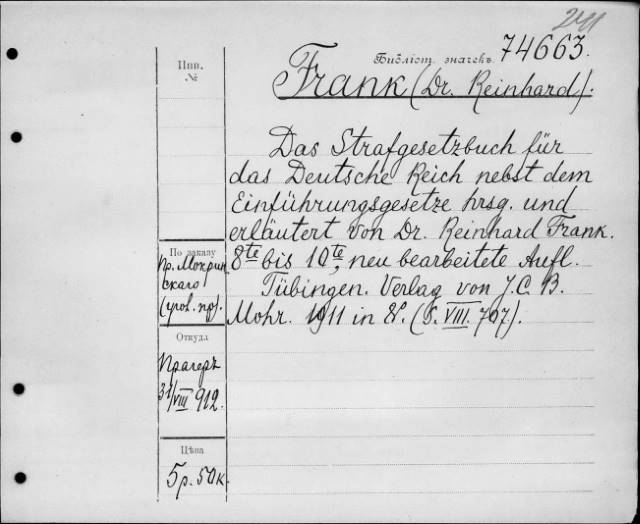 241
Библіот. значекъ 74663.
Инв.
№
Frank (Dr. Reinhard).
Das Strafgesetzbuch für
das Deutsche Reich nebst dem
Einführungsgesetze hrsg. und
erläutert von Dr. Reinhard Frank.
8te bis 10te, neu bearbeitete Aufl.
Tübingen. Verlag von J. C. B.
Mohr. 1911 in 8º. (S. VIII. 707).
По заказу
пр. Мокрин
скаго
(угол. пр).
Откуда
Прагеръ
31/VIII 912.
Цѣна
5 р. 50 к.